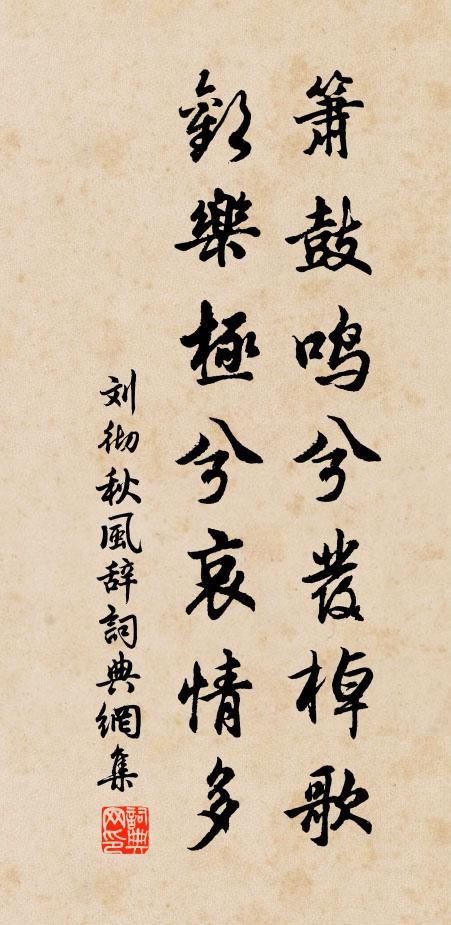 簫鼓鳴兮發棹歌
歡樂極兮哀情多
刘彻秋風辞詞典網集
詞典网印